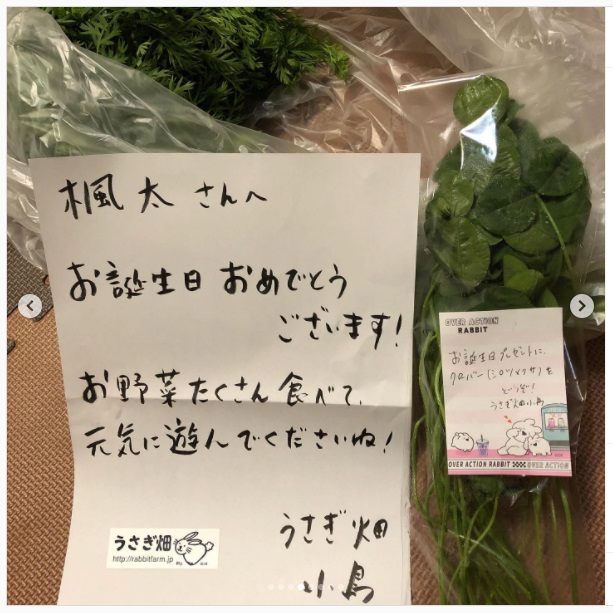 楓太さんへ
お誕生日おめでとう
ございます!
お野菜たくさん食べて、
元気に遊んでくださいね!
うさぎ畑
小島
うさぎ畑
http://rabbitfarm.jp
OVER ACTION
RABBIT
お誕生日プレゼントに、
クローバー(シロツメクサ)を
どうぞ!
うさぎ畑小島
OVER ACTION RABBIT
OVER ACTION